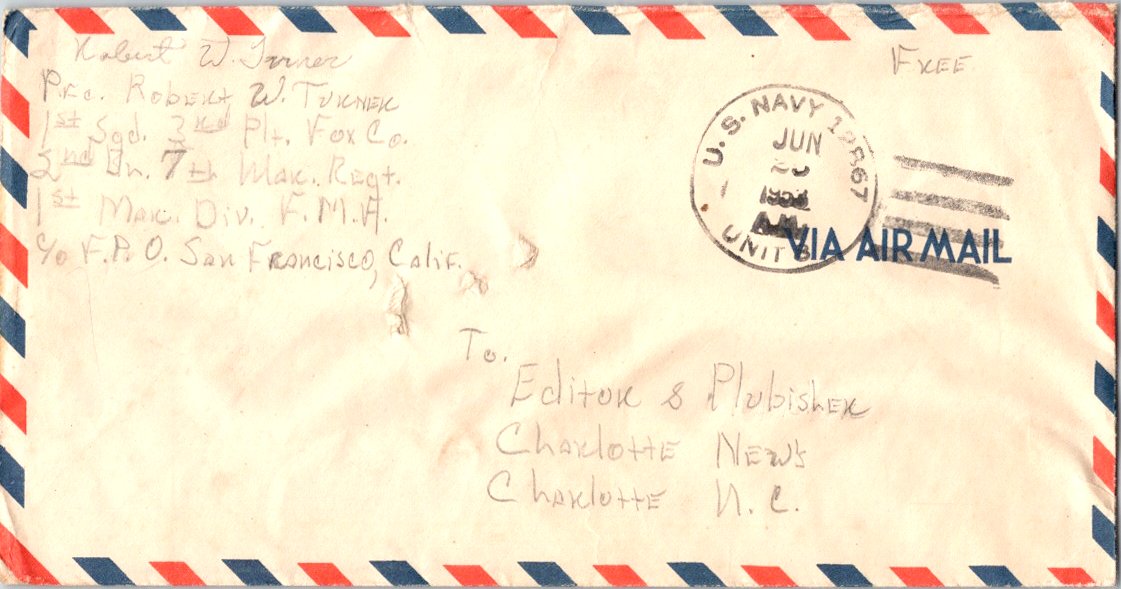 Robert W. Turner
Pfc. Robert W. Turner
1st Sqd. 3rd Plt. Fox Co.
2nd Bn. 7th Mar. Regt.
1st Mar. Div. F.M.F.
c/o F.P.O. San Francisco, Calif.
Free
U.S. NAVY 12867
JUN
1953
A.M.
UNIT B
VIA AIR MAIL
To.
Editor & Plubisher
Charlotte News
Charlotte N.C.